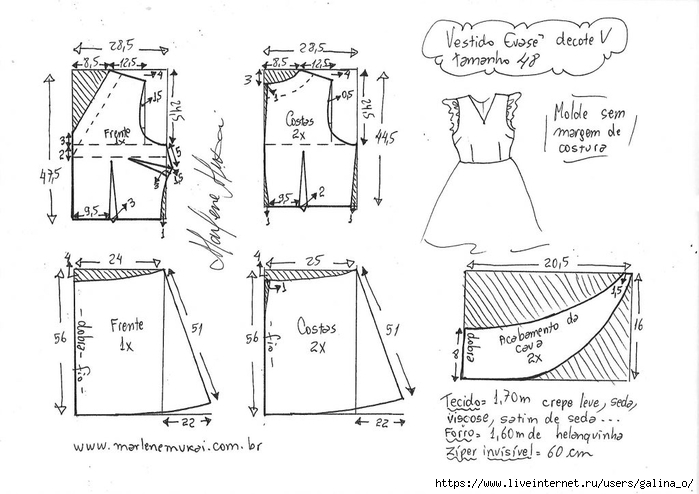 Vestido Evasê decote V
tamanho 48
Molde sem
margem de
costura
28,5
8,5
12,5
4
1,5
24,5
3
2
47,5
Frente
1x
5
3
9,5
3
1
28,5
8,5
12,5
4
3
1
0,5
24,5
44,5
Costas
2x
9,5
2
1
1
Marlene Mukai
24
4
56
Frente
1x
dobra - fio
51
22
25
4
1
56
Costas
2x
fio
51
22
20,5
1,5
16
8
dobra
Acabamento da
cava
2x
Tecido = 1,70m crepe leve, seda,
viscose, satim de seda...
Forro = 1,60m de helanquinha
Zíper invisível = 60 cm
www.marlenemukai.com.br
https://www.liveinternet.ru/users/galina_o/